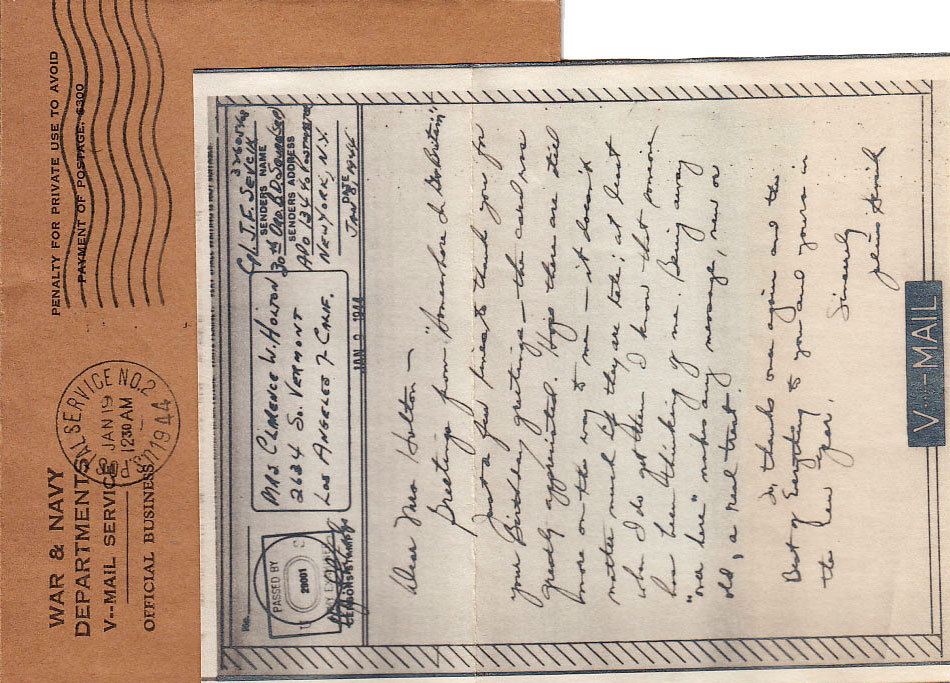 WAR & NAVY
DEPARTMENTS
V--MAIL SERVICE
OFFICIAL BUSINESS
PENALTY FOR PRIVATE USE TO AVOID
PAYMENT OF POSTAGE, $300
SERVICE NO. 2
JAN 19
12 30 AM
1944
No.
PASSED BY
29001
CENSOR'S STAMP
MRS CLARENCE W. HOLTON
2634 SO. VERMONT
LOS ANGELES 7 CALIF.
JAN 9 1944
Cpl. J. F. SEVCIK
SENDERS NAME
SENDERS ADDRESS
APO 134 % POSTMASTER
NEW YORK, N.Y.
DATE
JAN 8, 1944
Dear Mrs Holton —
Greetings from "Somewhere In Gr Britain"
Just a few lines to thank you for
your Birthday greetings — the card was
greatly appreciated. Hope there are still
more on the way to me — it doesn't
matter much if they are late; at least
when I do get them I know that someone
has been thinking of me. Being away
"over here" makes any message, new or
old, a real treat.
So, thanks once again and the
Best of Everything to you and yours in
the New Year,
Sincerely
V···-MAIL